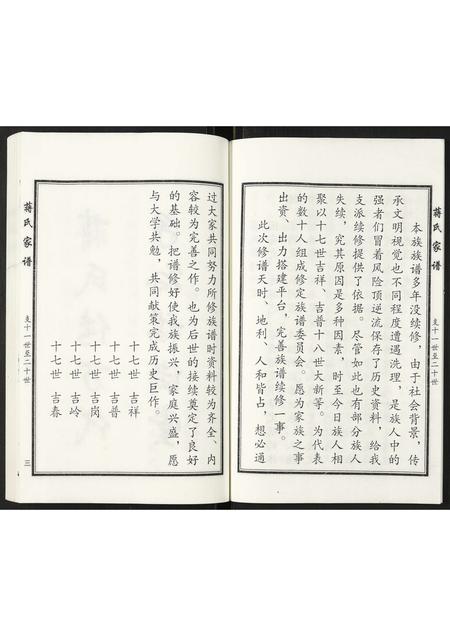 蒋氏家谱
支十一世至二十世
本族族谱多年没续修，由于社会背景，传
承文明视觉也不同程度遭遇洗理，是族人中的
强者们冒着风险顶逆流保存了历史资料，给我
支派续修提供了依据。尽管如此也有部分族人
失续，究其原因是多种因素，时至今日族人相
聚以十七世吉祥、吉普十八世大新等。为代表
的数十人组成修定族谱委员会。愿为家族之事
出资、出力搭建平台，完善族谱续修一事。
此次修谱天时、地利、人和皆占，想必通
过大家共同努力所修族谱时资料较为齐全、内
容较为完善之作。也为后世的接续奠定了良好
的基础。把谱修好使我族振兴，家庭兴盛，愿
与大学共勉，共同献策完成历史巨作。
十七世 吉祥
十七世 吉普
十七世 吉岗
十七世 吉岭
十七世 吉春
蒋氏家谱
支十一世至二十世
三